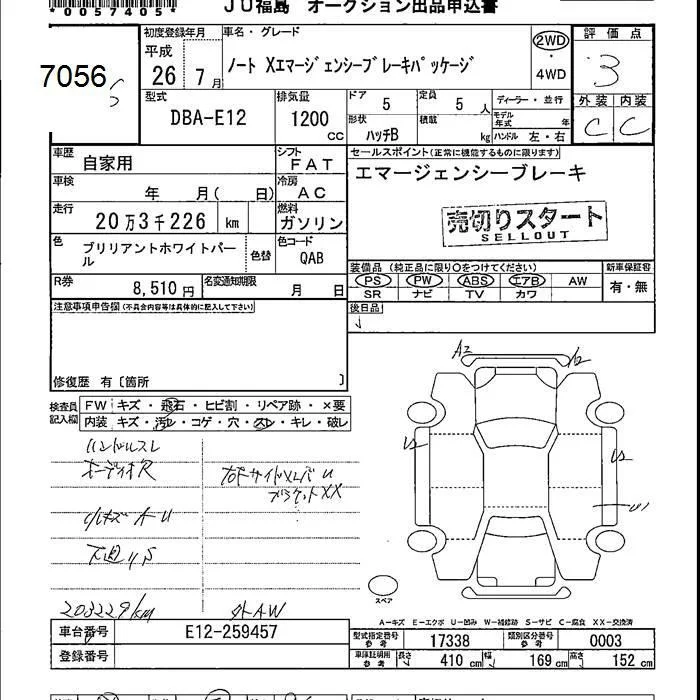 *0057405*
JU福島 オークション出品申込書
7056
初度登録年月
平成
26年 7月
車名・グレード
ノート Xエマージェンシーブレーキパッケージ
2WD
・
4WD
評価点
3
型式
DBA-E12
排気量
1200
CC
ドア
5
定員
5人
形状
ハッチB
積載
kg
ディーラー・並行
モデル年式 年
ハンドル 左・右
外装 内装
C C
車歴
自家用
シフト
FAT
車検
年 月( 日)
冷房
AC
走行
20万3千226 km
燃料
ガソリン
色
ブリリアントホワイトパール
色替
色コード
QAB
R券
8,510円
名変通知期限
月 日
セールスポイント(正常に機能するものに限ります)
エマージェンシーブレーキ
売切りスタート
SELLOUT
装備品(純正品に限り○をつけてください)
新車保証書
PS PW ABS エアB AW
SR ナビ TV カワ
有・無
後日品
注意事項申告欄(不具合内容等は具体的に記入して下さい)
修復歴 有〔箇所 〕
検査員記入欄
FW キズ・飛石・ヒビ割・リペア跡・×要
内装 キズ・汚レ・コゲ・穴・スレ・キレ・破レ
ハンドルスレ
オーディオR
右Fサイドメンバ U
ブラケットXX
小キズ A U
下廻りS
203229km
外AW
A2
U2
U2
スペア
A-キズ E-エクボ U-凹み W-補修跡 S-サビ C-腐食 XX-交換済
車台番号
E12-259457
登録番号
型式指定番号 参考
17338
類別区分番号 参考
0003
車庫証明用 参考
長さ 410cm 幅 169cm 高さ 152cm